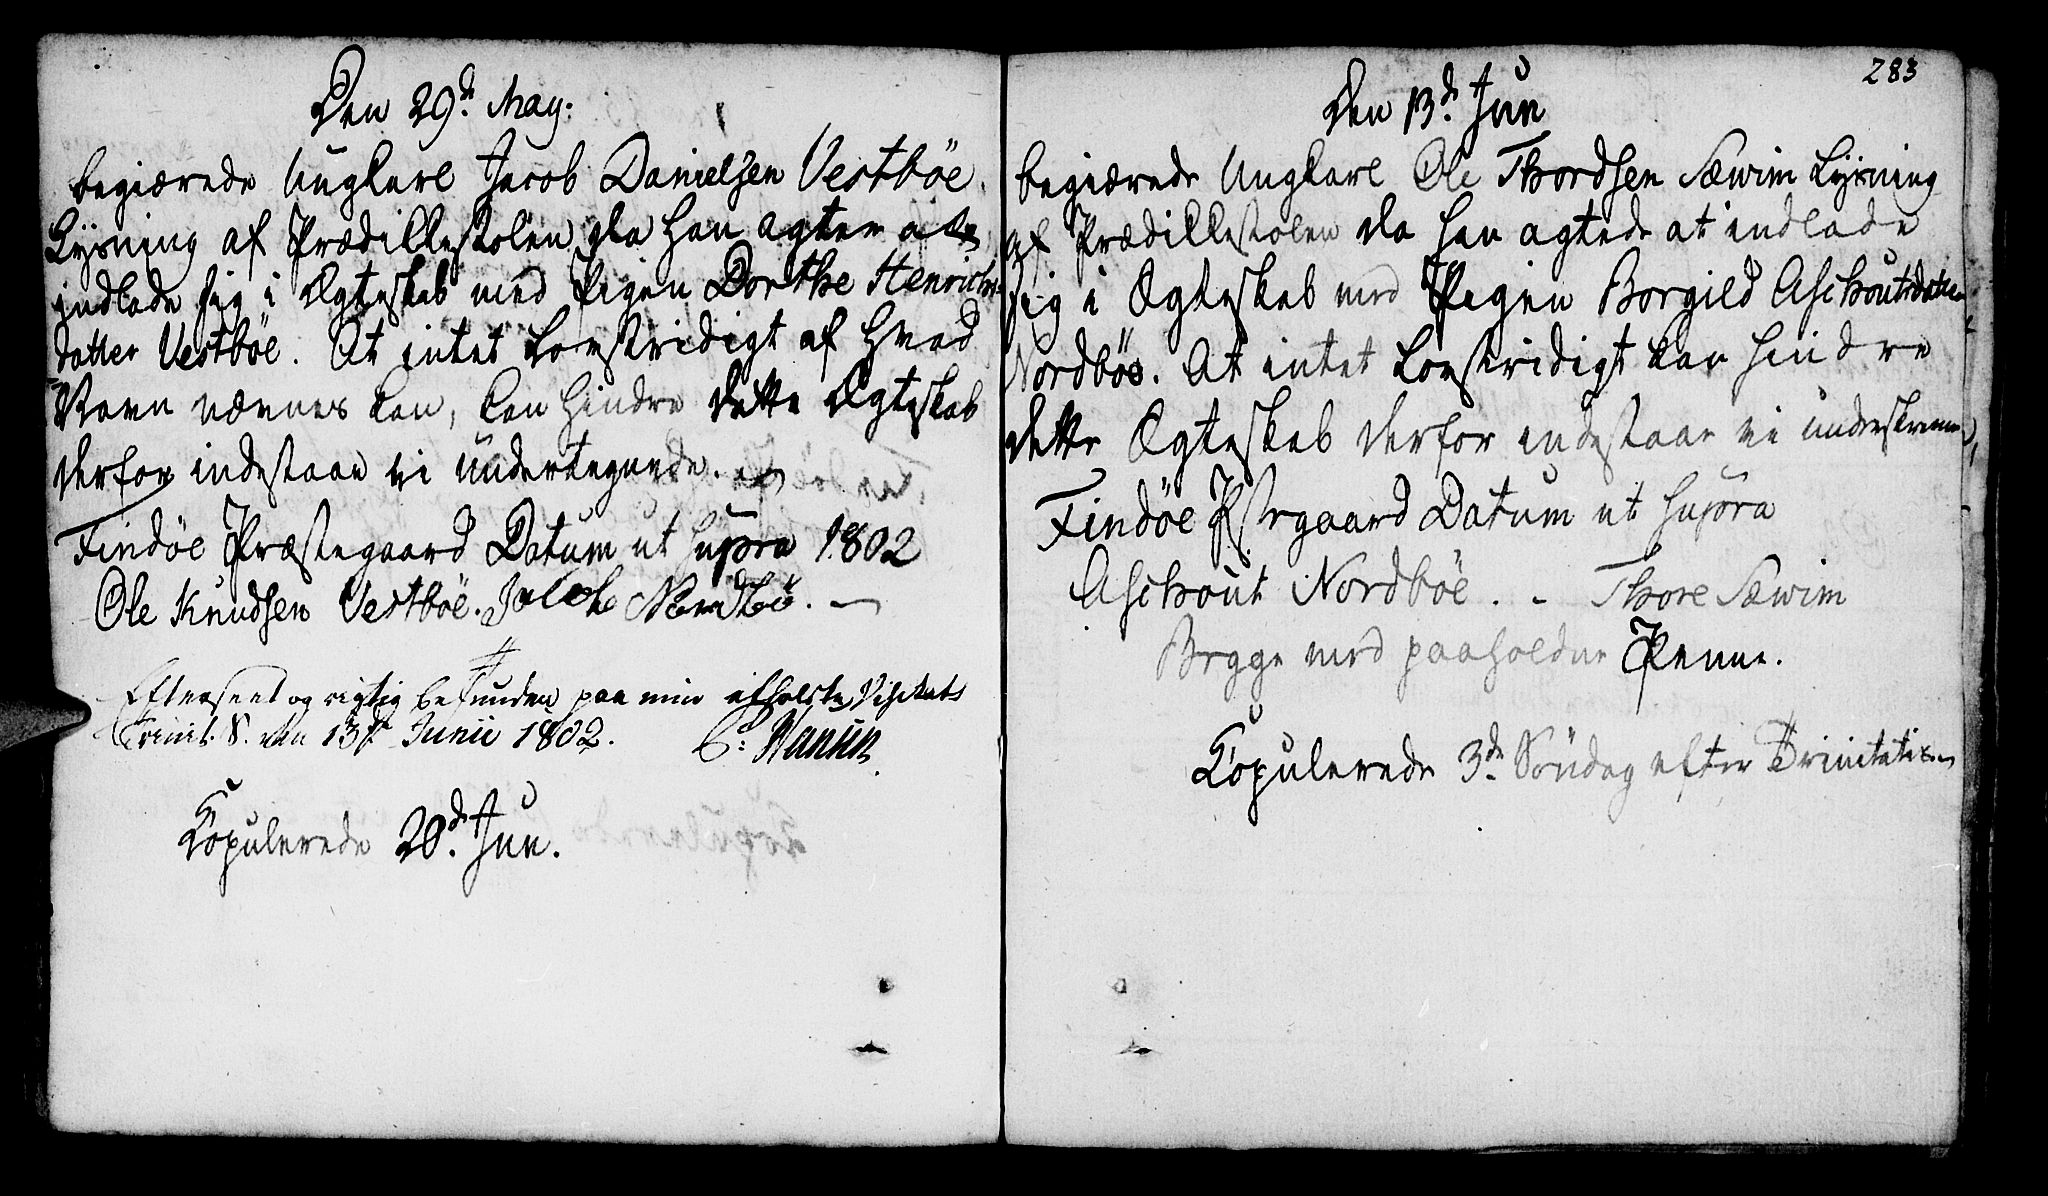 Den 29de May:
begiærede Ungkarl Jacob Danielsen Vestböe
Lysning af Prædikestolen da han agter at
indlade sig i Ægteskab med Pigen Dorthe Henrichs-
datter Vestböe. At intet Lovstridigt af Hvad
Navn nævnes kan, kan hindre dette Ægteskab
derfor indestaar vi undertegnede.
Findöe Præstegaard Datum ut supra 1802
Ole Knudsen Vestböe. Nordböe.
Efterseet og rigtig befunden paa min afholdte Visitats
Trinit. S. den 13de Junii 1802.
Copulerede 20de Jun.
283
Den 13de Jun
begiærede Ungkarl Ole Thordsen Sæwim Lysning
af Prædikestolen da han agtede at indlade
sig i Ægteskab med Pigen Borgild Aschoutsdatter
Nordböe. At intet Lovstridigt kan hindre
dette Ægteskab derfor indestaar vi underskrevne
Findöe Pstrgaard Datum ut supra
Aschout Nordböe. - Thore Sæwim
Begge med paaholdne Penne.
Copulerede 3de Söndag efter Trinitatis